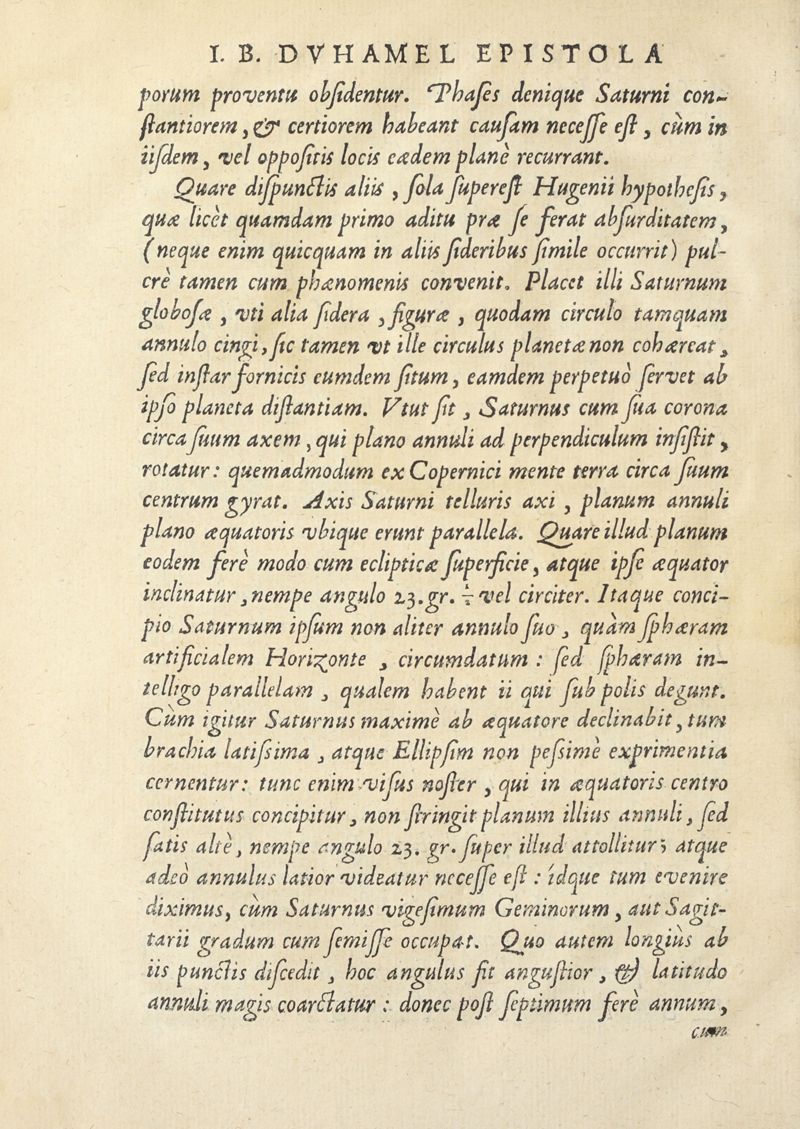 I. B. DVHAMEL EPISTOLA
porum proventu obſidentur. Phaſes denique Saturni con-
ſtantiorem, & certiorem habeant cauſam neceſſe eſt, cùm in
iiſdem, vel oppoſitis locis eædem planè recurrant.
Quare diſpunctis aliis, ſola ſupereſt Hugenii hypotheſis,
quæ licèt quamdam primo aditu præ ſe ferat abſurditatem,
(neque enim quicquam in aliis ſideribus ſimile occurrit) pul-
crè tamen cum phænomenis convenit. Placet illi Saturnum
globoſæ, vti alia ſidera, figuræ, quodam circulo tamquam
annulo cingi, ſic tamen vt ille circulus planetæ non cohæreat,
ſed inſtar fornicis eumdem ſitum, eamdem perpetuò ſervet ab
ipſo planeta diſtantiam. Vtut ſit, Saturnus cum ſua corona
circa ſuum axem, qui plano annuli ad perpendiculum inſiſtit,
rotatur: quemadmodum ex Copernici mente terra circa ſuum
centrum gyrat. Axis Saturni telluris axi, planum annuli
plano æquatoris vbique erunt parallela. Quare illud planum
eodem ferè modo cum eclipticæ ſuperficie, atque ipſe æquator
inclinatur, nempe angulo 23. gr. vel circiter. Itaque conci-
pio Saturnum ipſum non aliter annulo ſuo, quàm ſphæram
artificialem Horizonte, circumdatum: ſed ſphæram in-
telligo parallelam, qualem habent ii qui ſub polis degunt.
Cùm igitur Saturnus maximè ab æquatore declinabit, tum
brachia latiſsima, atque Ellipſim non peſsimè exprimentia
cernentur: tunc enim viſus noſter, qui in æquatoris centro
conſtitutus concipitur, non ſtringit planum illius annuli, ſed
ſatis altè, nempe angulo 23. gr. ſuper illud attollitur; atque
adeò annulus latior videatur neceſſe eſt: idque tum evenire
diximus, cùm Saturnus vigeſimum Geminorum, aut Sagit-
tarii gradum cum ſemiſſe occupat. Quo autem longiùs ab
iis punctis diſcedit, hoc angulus fit anguſtior, & latitudo
annuli magis coarctatur: donec poſt ſeptimum ferè annum,
cùm